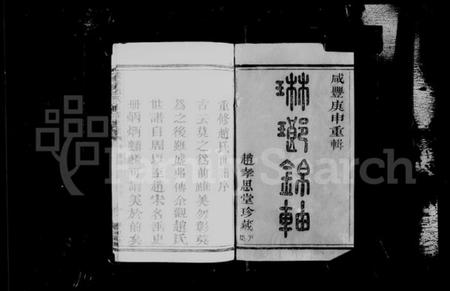 咸豐庚申重輯
琳瑯錦軸
趙孝思堂珍藏
重修趙氏世譜序
古云莫之為前雖美勿彰莫
為之後雖盛弗傳余觀趙氏
世譜自周以至趙宋名臣史
冊炳炳麟麟可謂美於前矣
FamilySearch